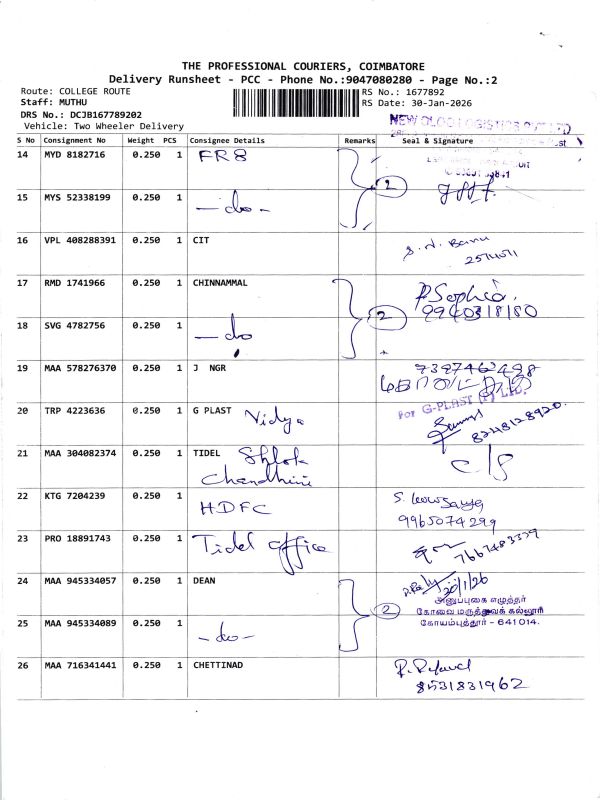 THE PROFESSIONAL COURIERS, COIMBATORE
Delivery Runsheet - PCC - Phone No.:9047080280 - Page No.:2
Route: COLLEGE ROUTE
Staff: MUTHU
DRS No.: DCJB167789202
Vehicle: Two Wheeler Delivery
RS No.: 1677892
RS Date: 30-Jan-2026
S No Consignment No Weight PCS Consignee Details Remarks Seal & Signature
14 MYD 8182716 0.250 1 FR8
15 MYS 52338199 0.250 1 - do - 2
16 VPL 408288391 0.250 1 CIT
17 RMD 1741966 0.250 1 CHINNAMMAL P. Sophia.
9940318180
18 SVG 4782756 0.250 1 - do 2
19 MAA 578276370 0.250 1 J NGR 7397462498
20 TRP 4223636 0.250 1 G PLAST Vidya For G-PLAST (P) LTD.
8248128920.
21 MAA 304082374 0.250 1 TIDEL Shlok
Chandhini C/S
22 KTG 7204239 0.250 1 HDFC
9965074299
23 PRO 18891743 0.250 1 Tidel office
7667483379
24 MAA 945334057 0.250 1 DEAN 30/1/26
அனுப்புகை எழுத்தர்
கோவை மருத்துவக் கல்லூரி
கோயம்புத்தூர் - 641 014.
25 MAA 945334089 0.250 1 - do - 2
26 MAA 716341441 0.250 1 CHETTINAD
8531831962